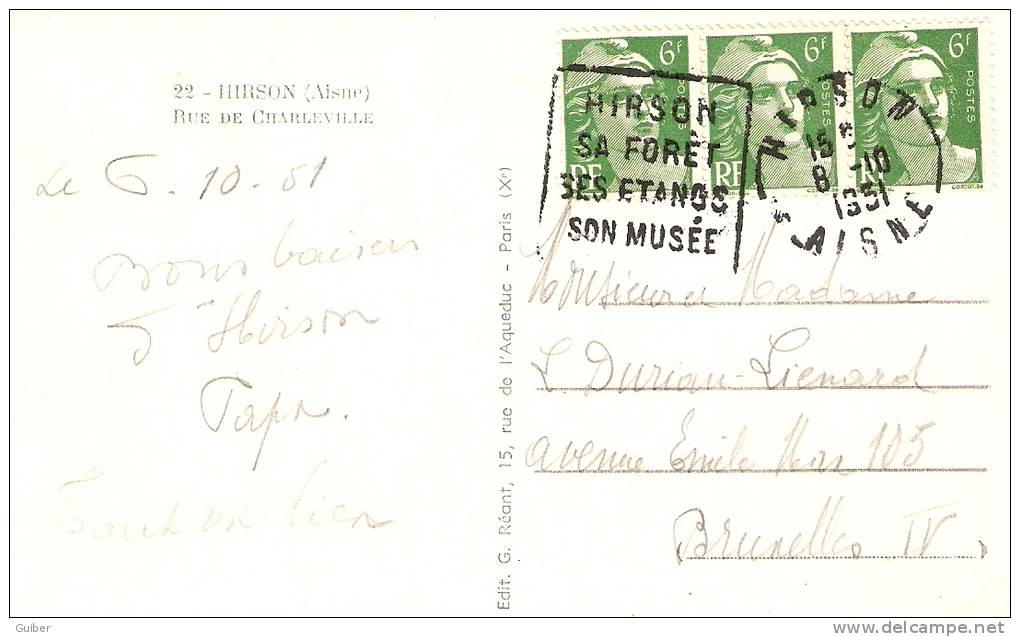 22 - HIRSON (Aisne)
RUE DE CHARLEVILLE
Le 6. 10 - 51
Bons baisers
d'Hirson
Papa.
Tout va bien
Edit. G. Réant, 15, rue de l'Aqueduc - Paris (Xe)
6F
POSTES
RF
6F
POSTES
RF
6F
POSTES
RF
HIRSON
SA FORÊT
SES ETANGS
SON MUSÉE
HIRSON
15
8 -10
1951
AISNE
Monsieur et Madame
L Durian-Lienard
avenue Emile Max 105
Bruxelles IV.
Guiber
delcampe.net